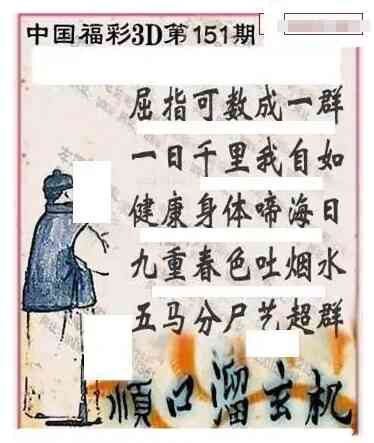 中国福彩3D第151期
屈指可数成一群
一日千里我自如
健康身体啼海日
九重春色吐烟水
五马分尸艺超群
顺口溜玄机